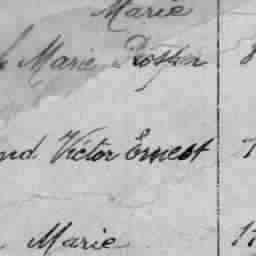 Marie
Marie Prosper
Victor Ernest
Marie